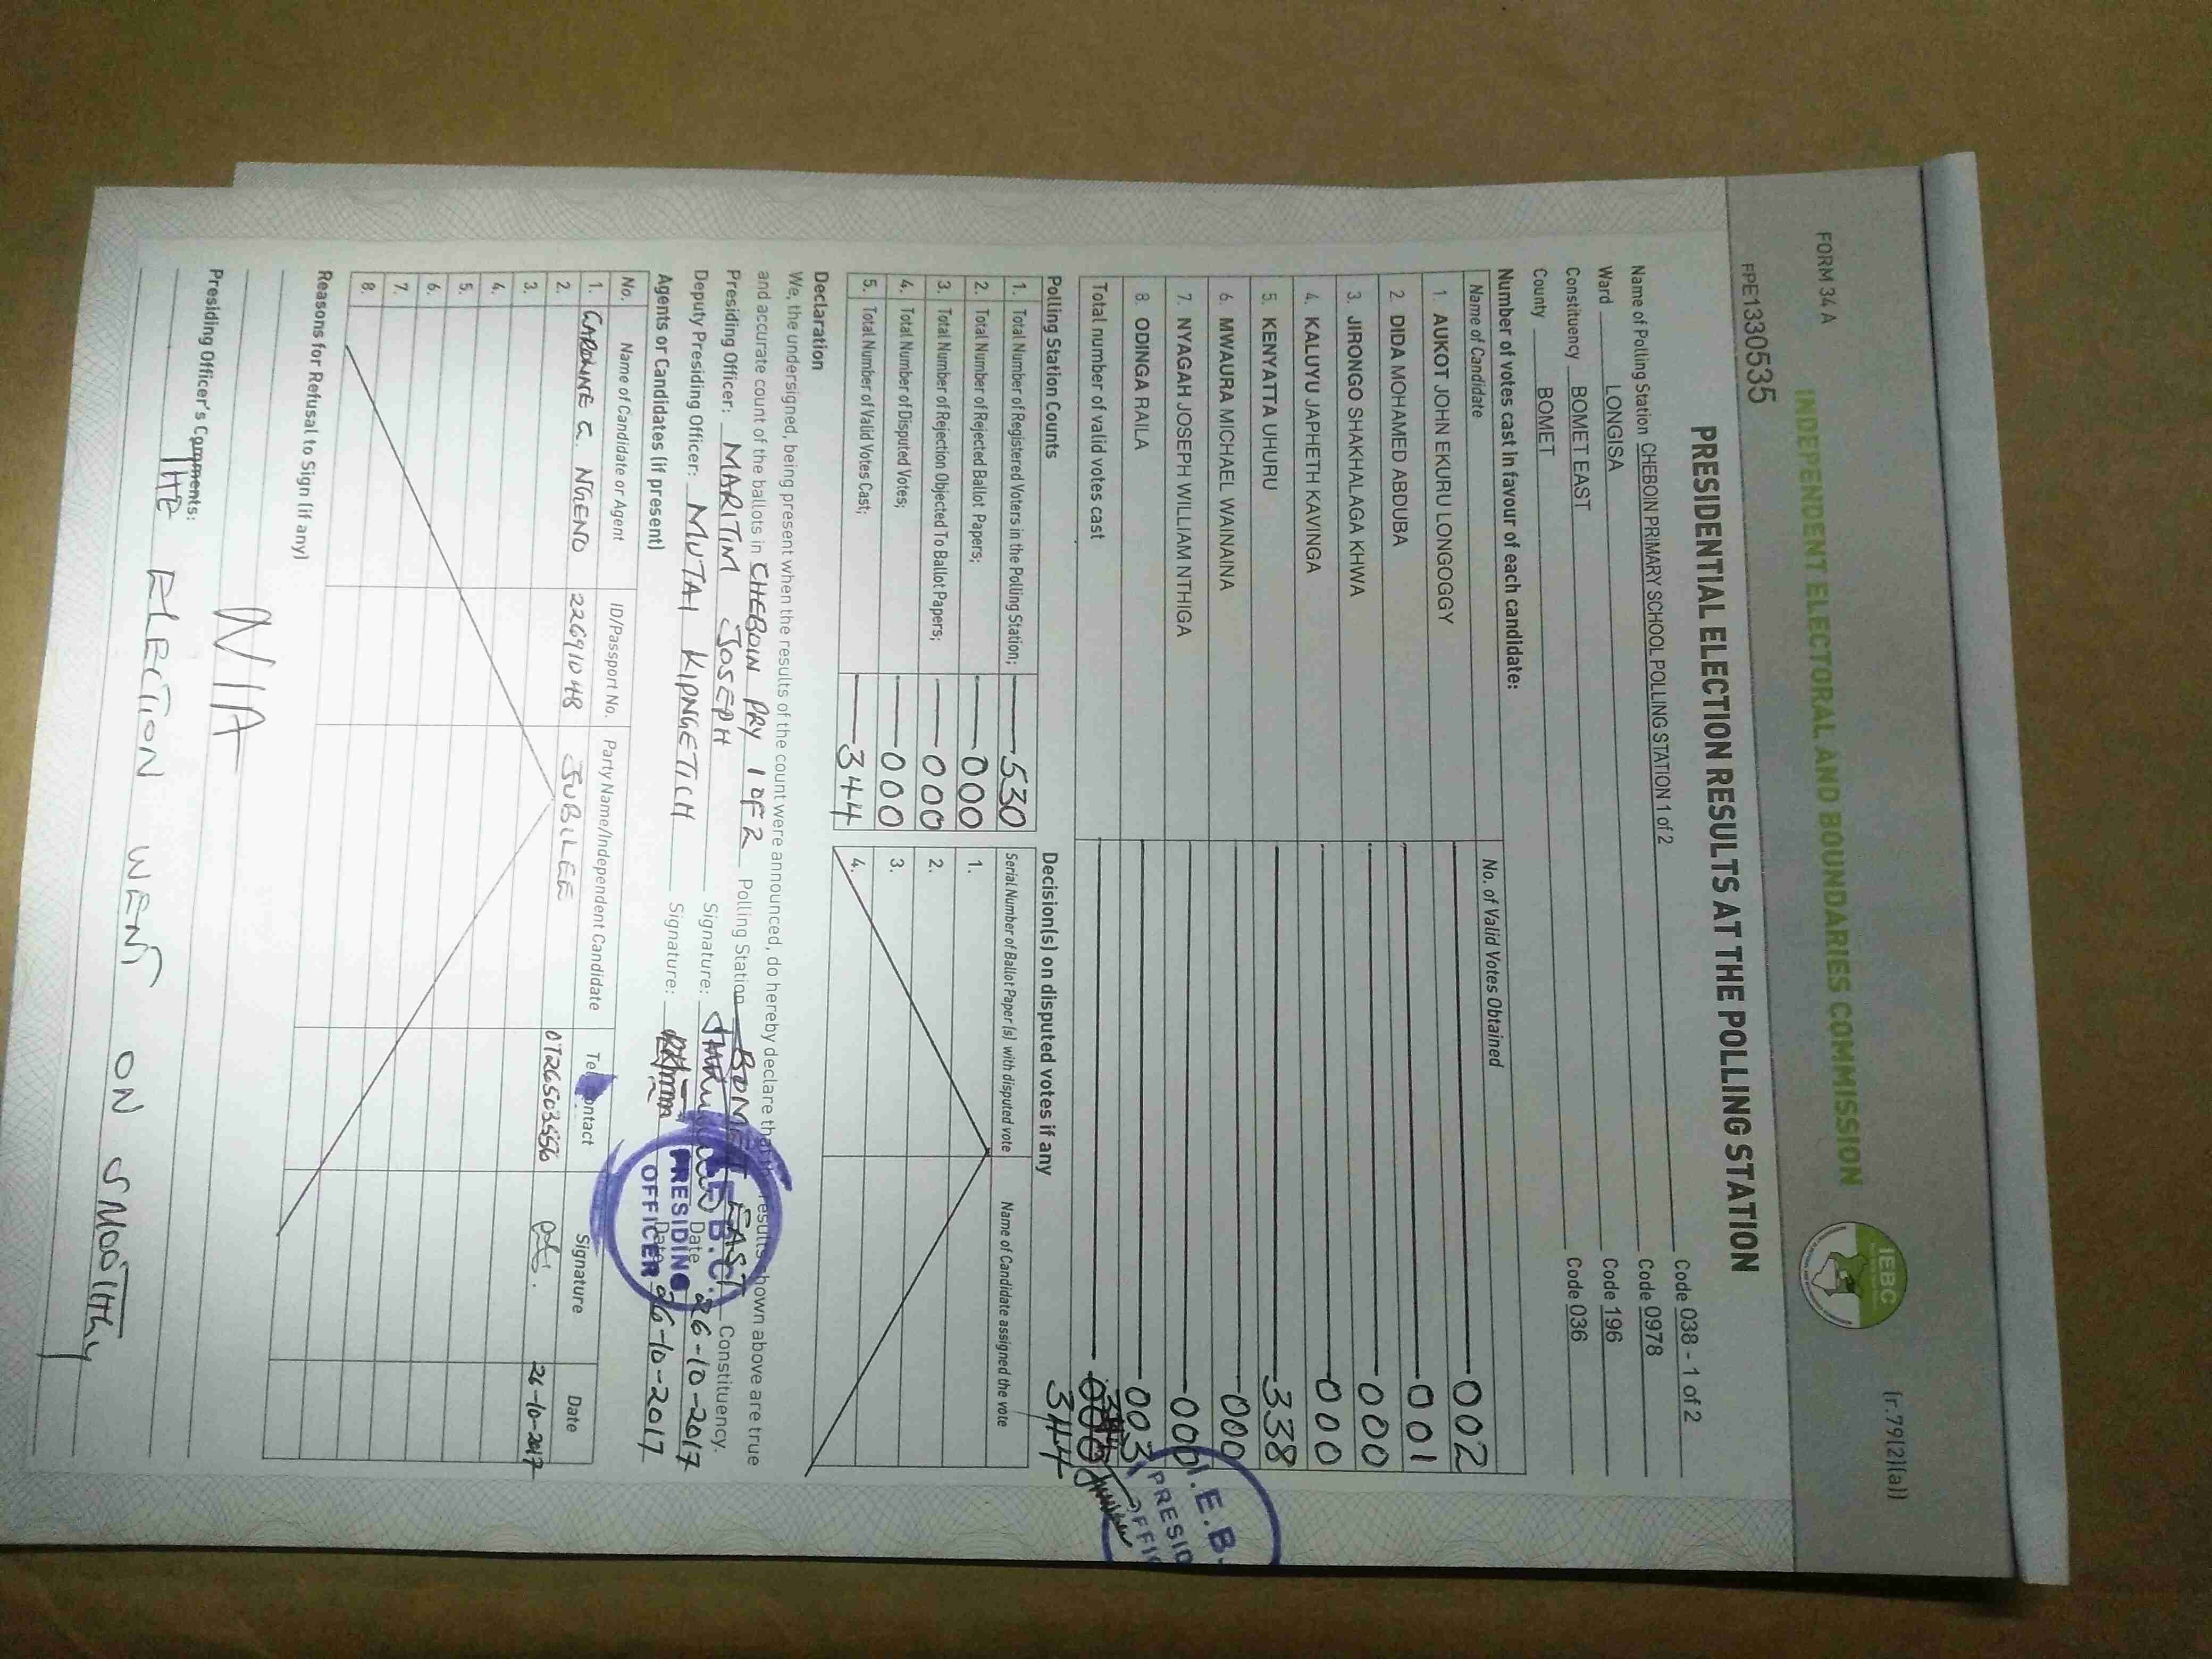 FORM 34 A
(r.79(2)(a))
INDEPENDENT ELECTORAL AND BOUNDARIES COMMISSION
IEBC
FPE1330535
PRESIDENTIAL ELECTION RESULTS AT THE POLLING STATION
Name of Polling Station CHEBOIN PRIMARY SCHOOL POLLING STATION 1 of 2 Code 038 - 1 of 2
Ward LONGISA Code 0978
Constituency BOMET EAST Code 196
County BOMET Code 036
Number of votes cast in favour of each candidate:
Name of Candidate No. of Valid Votes Obtained
1. AUKOT JOHN EKURU LONGOGGY 002
2. DIDA MOHAMED ABDUBA 001
3. JIRONGO SHAKHALAGA KHWA 000
4. KALUYU JAPHETH KAVINGA 000
5. KENYATTA UHURU 338
6. MWAURA MICHAEL WAINAINA 000
7. NYAGAH JOSEPH WILLIAM NTHIGA 000
8. ODINGA RAILA 003
Total number of valid votes cast
344
I.E.B.
PRESID
OFFI
Polling Station Counts
1. Total Number of Registered Voters in the Polling Station; 530
2. Total Number of Rejected Ballot Papers; 000
3. Total Number of Rejection Objected To Ballot Papers; 000
4. Total Number of Disputed Votes; 000
5. Total Number of Valid Votes Cast; 344
Decision(s) on disputed votes if any
Serial Number of Ballot Paper(s) with disputed vote Name of Candidate assigned the vote
1.
2.
3.
4.
Declaration
We, the undersigned, being present when the results of the count were announced, do hereby declare that results shown above are true
and accurate count of the ballots in CHEBOIN PRY 1 OF 2 Polling Station BOMET EAST Constituency.
Presiding Officer: MARITIM JOSEPH Signature: Date 26-10-2017
Deputy Presiding Officer: MUTAI KIPNGETICH Signature: Date 26-10-2017
I.E.B.C.
PRESIDING
OFFICER
Agents or Candidates (if present)
No. Name of Candidate or Agent ID/Passport No. Party Name/Independent Candidate Tel. Contact Signature Date
1. C. NGENO 22691048 JUBILEE 0726503556 26-10-2017
2.
3.
4.
5.
6.
7.
8.
Reasons for Refusal to Sign (if any)
N/A
Presiding Officer's Comments:
THE ELECTION WENT ON SMOOTHLY